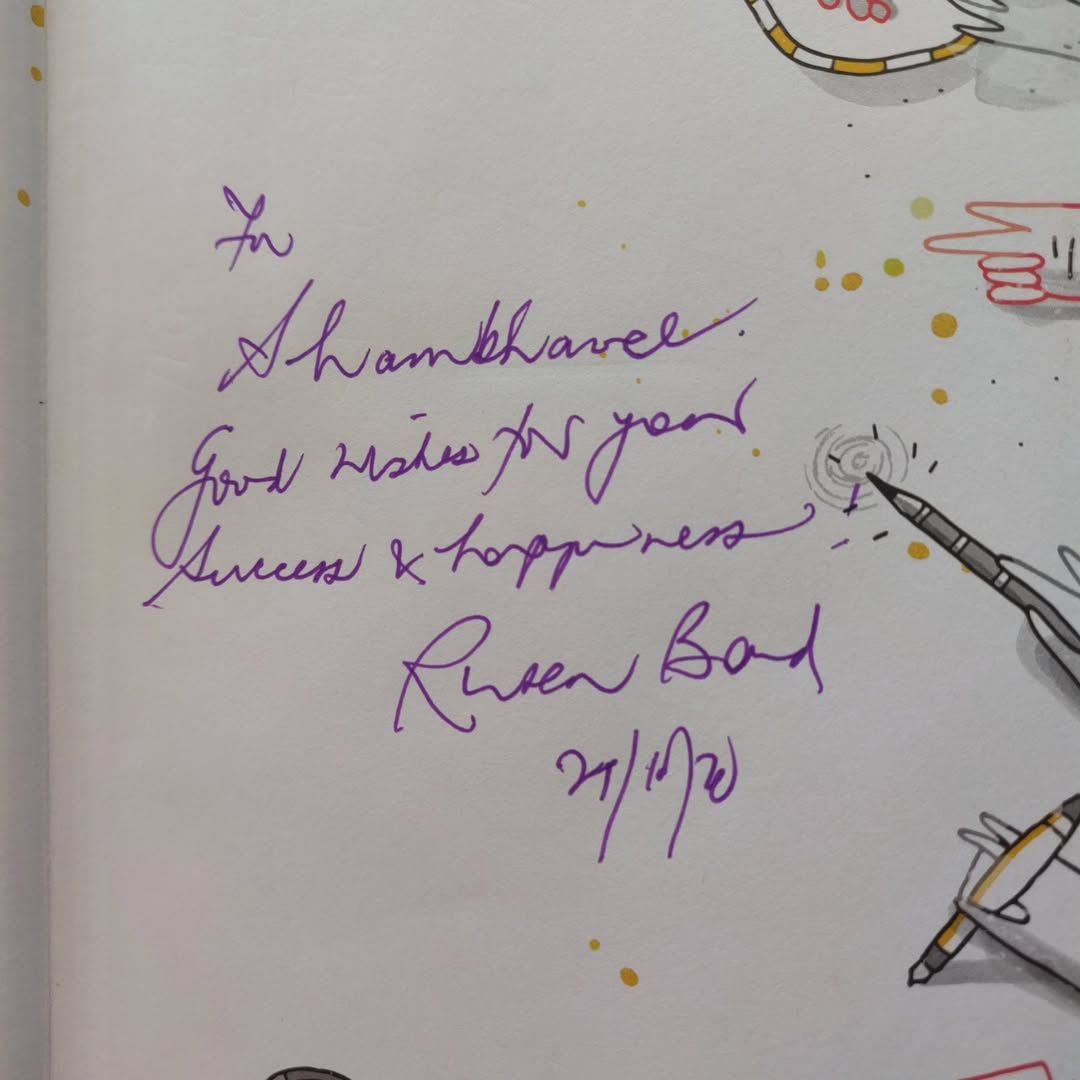 For
Shambhavee
Good wishes for your
success & happiness
Ruskin Bond